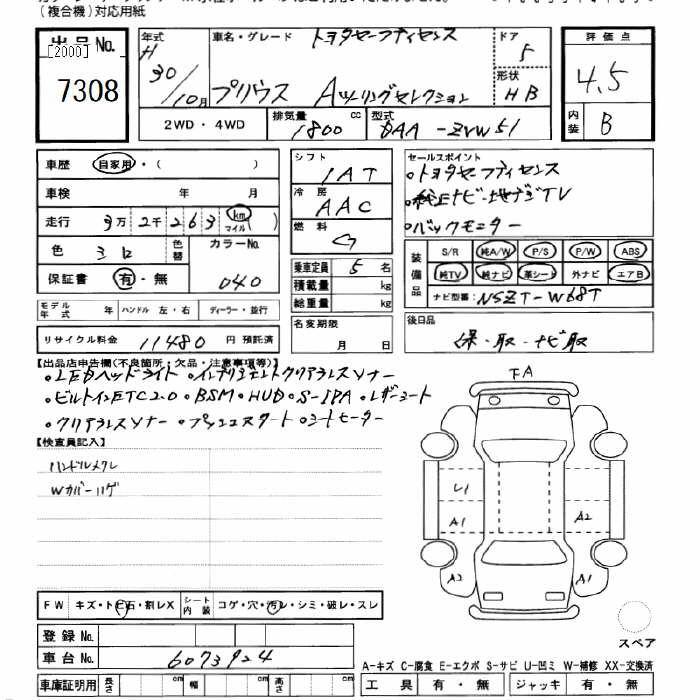 (複合機)対応用紙
出品 No.
[2000]
7308
年式
H 30/10月
車名・グレード
トヨタセーフティセンス
プリウス Aツーリングセレクション
ドア
5
形状
HB
評価点
4.5
内装
B
2WD・4WD
排気量
1800 cc
型式
DAA-ZVW51
車歴 自家用・( )
車検 年 月
走行 3万2千263 km マイル ( )
色
シロ
色替
カラーNo.
040
保証書 有・無
モデル年式 年 ハンドル 左・右 ディーラー・並行
リサイクル料金 11480 円 預託済
シフト
IAT
冷房
AAC
燃料
G
乗車定員 5 名
積載量 kg
総重量 kg
名変期限
月 日
セールスポイント
・トヨタセーフティセンス
・純正ナビ・地デジTV
・バックモニター
装備品
S/R 純A/W P/S P/W ABS
純TV 純ナビ 革シート 外ナビ エアB
ナビ型番: NSZT-W68T
後日品
保・取・ナビ取
【出品店申告欄(不良箇所・欠品・注意事項等)】
・LEDヘッドライト ・インテリジェントクリアランスソナー
・ビルトインETC2.0 ・BSM・HUD・S-IPA・レザーシート
・クリアランスソナー ・プッシュスタート・シートヒーター
【検査員記入】
ハンドルスレ
Wカバーハゲ
FA
U1
A1
A2
A2
A1
スペア
FW キズ・トビ石・割レX
シート内装 コゲ・穴・汚レ・シミ・破レ・スレ
登録 No.
車台 No. 6073924
車庫証明用 長さ cm 幅 cm 高さ cm
A-キズ C-腐食 E-エクボ S-サビ U-凹ミ W-補修 XX-交換済
工具 有・無 ジャッキ 有・無